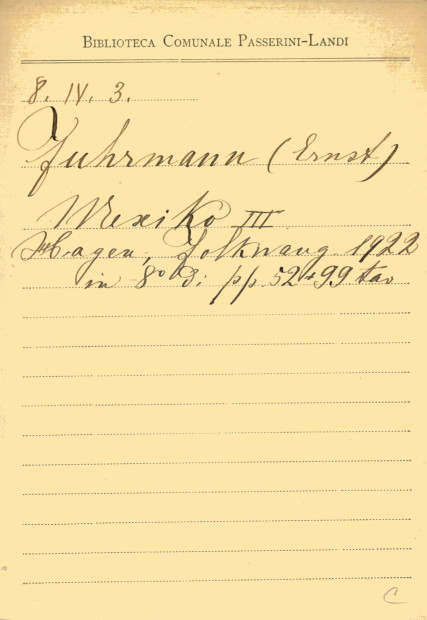 BIBLIOTECA COMUNALE PASSERINI-LANDI
8. IV. 3.
Fuhrmann (Ernst)
Mexiko III
Hagen, Folkwang 1922
in 8º di pp. 52+99 tav
C